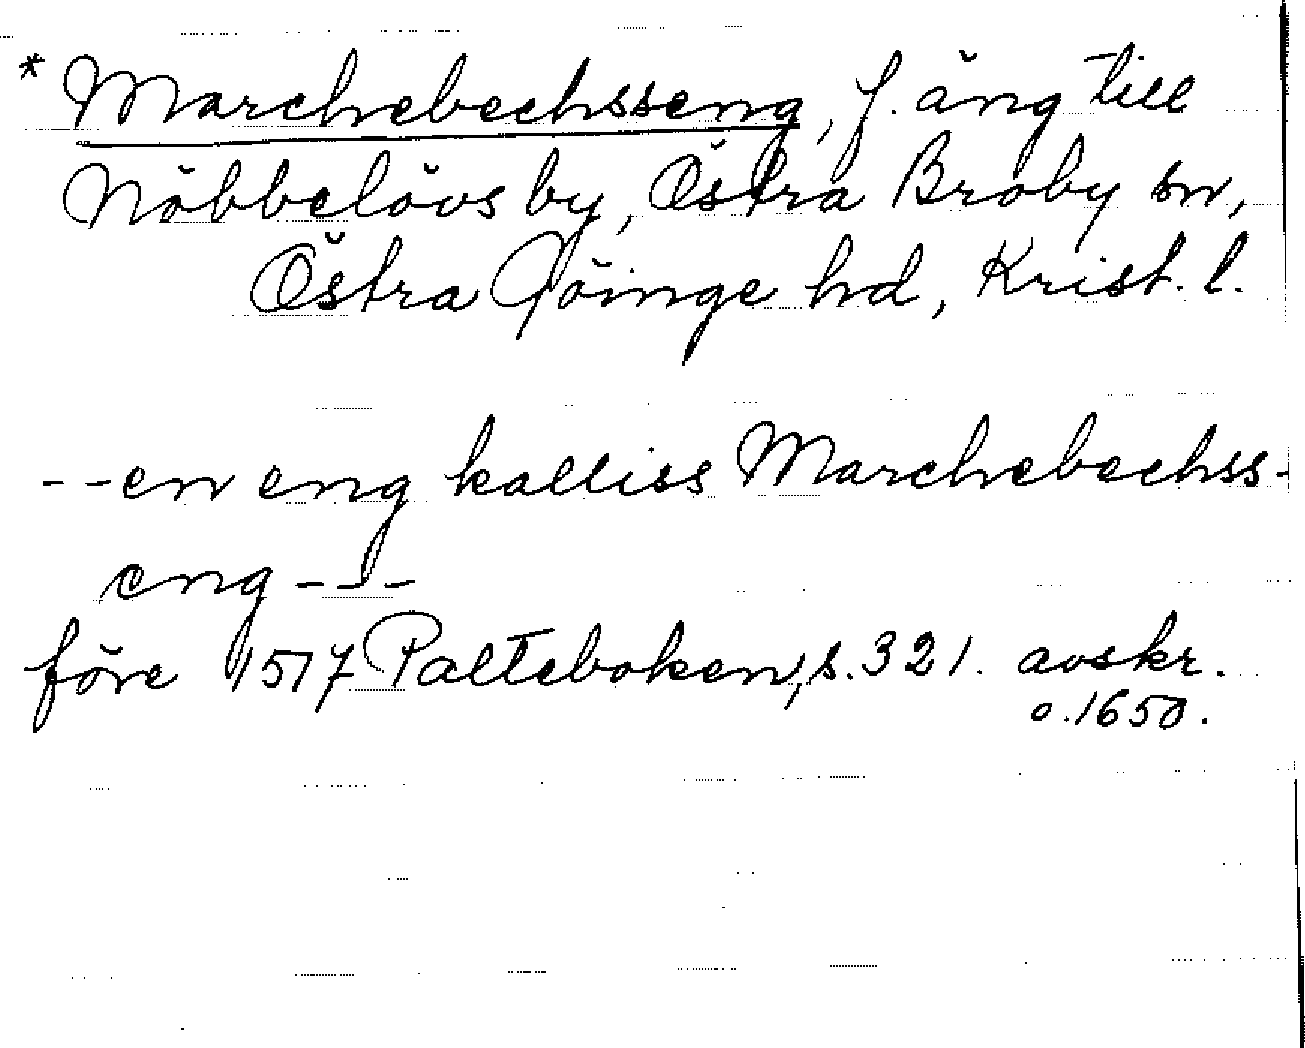 * Marchebechsseng, f. äng till
Nöbbelövs by, Östra Broby sn,
Östra Göinge hd, Krist. l.
--en eng kalliss Marchebechss-
eng ---
före 1517 Palteboken, s. 321. avskr.
o. 1650.